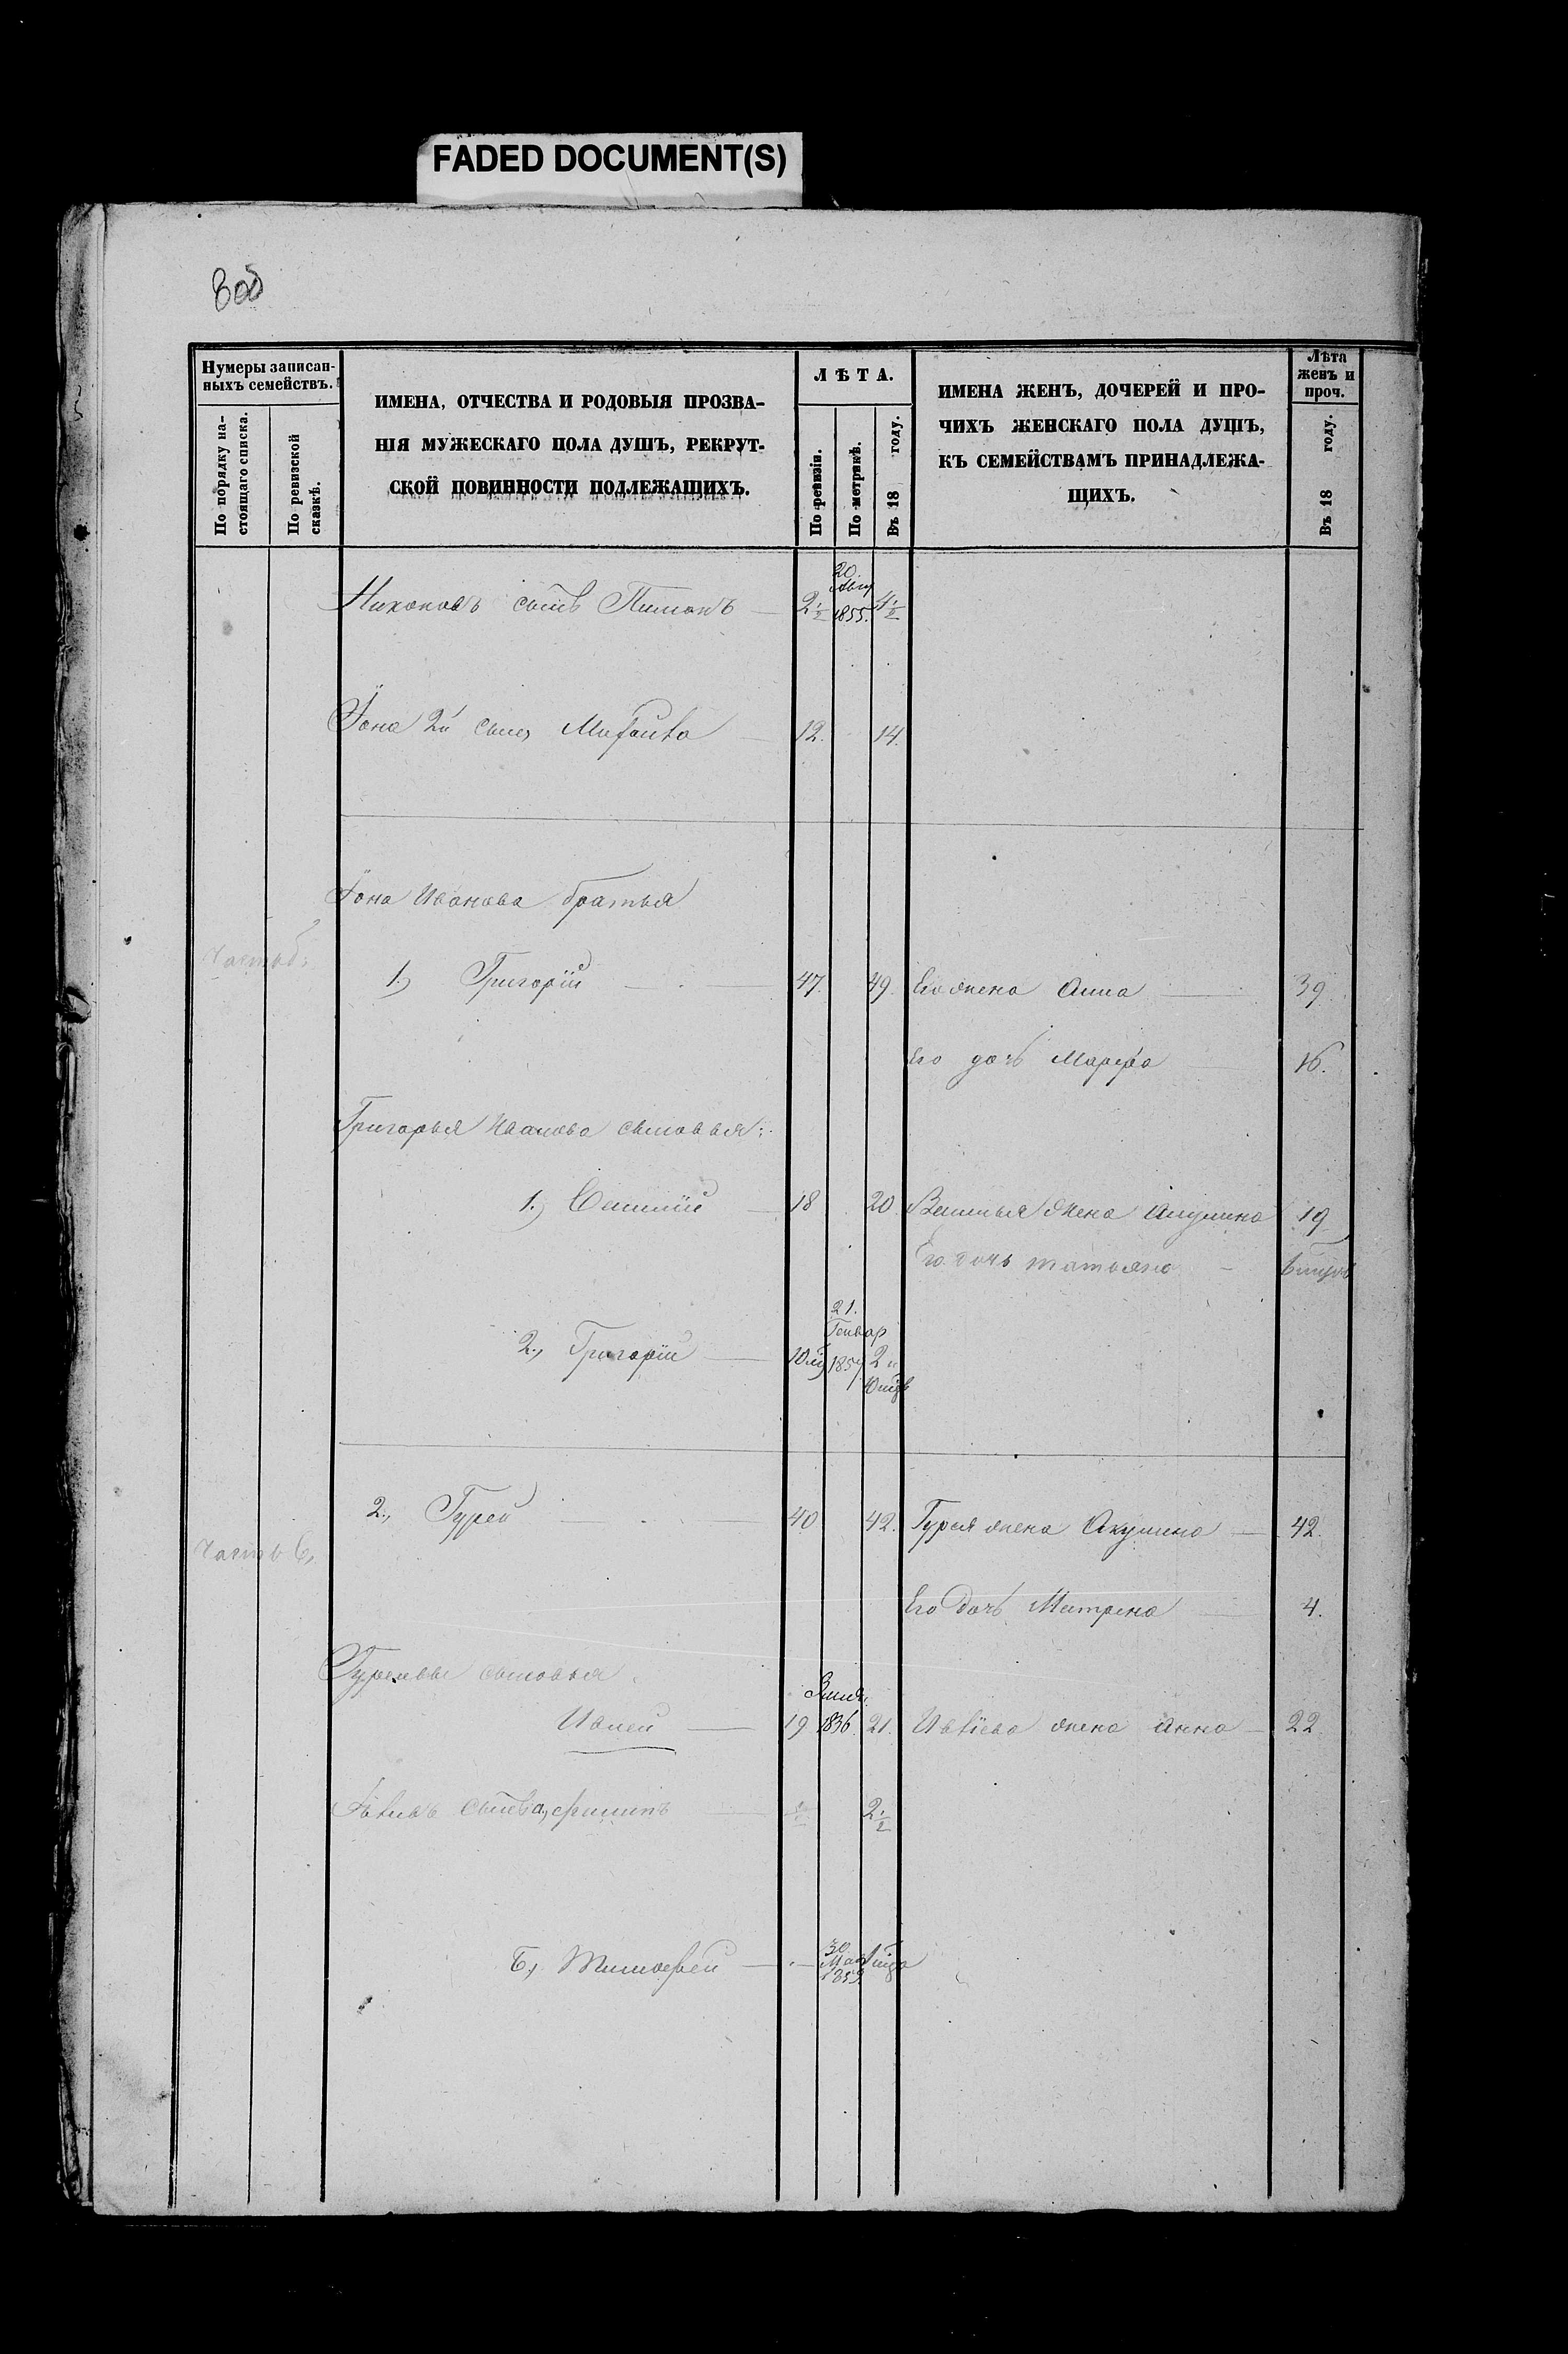 FADED DOCUMENT(S)
8об
Нумеры записан-
ныхъ семействъ.
По порядку на-
стоящаго списка.
По ревизской
сказкѣ.
ИМЕНА, ОТЧЕСТВА И РОДОВЫЯ ПРОЗВА-
НІЯ МУЖЕСКАГО ПОЛА ДУШЪ, РЕКРУТ-
СКОЙ ПОВИННОСТИ ПОДЛЕЖАЩИХЪ.
ЛѢТА.
По ревизіи.
По метрикѣ.
Въ 18 году.
ИМЕНА ЖЕНЪ, ДОЧЕРЕЙ И ПРО-
ЧИХЪ ЖЕНСКАГО ПОЛА ДУШЪ,
КЪ СЕМЕЙСТВАМЪ ПРИНАДЛЕЖА-
ЩИХЪ.
Лѣта
женъ и
проч.
Въ 18 году.
20.
Никоновъ сынъ Пименъ 2½ 1855. 4½
Іона 2й сынъ 12. 14.
Іона Иванова братья
1.) Григорій 47. 49. Его жена Анна 39.
Его дочь Марфа 16.
Григорья Иванова сыновья:
1.) 18 20. жена Акулина 19
Его дочь Татьяна
21.
Генвар
2., Григорій 1857 2 и
2., Гурей 40 42. Гурея жена Акулина 42.
Часть
Его дочь Матрена 4.
сыновья
Ивлей 19 1836. 21. Ивліева жена Анна 22.
сынъ а, Филипъ 2½
30
Б., Тимофей Мар